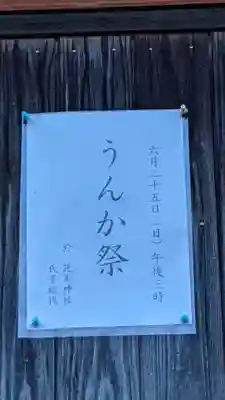 六月二十五日(日)午後三時
うんか祭
於 神社
氏子総代